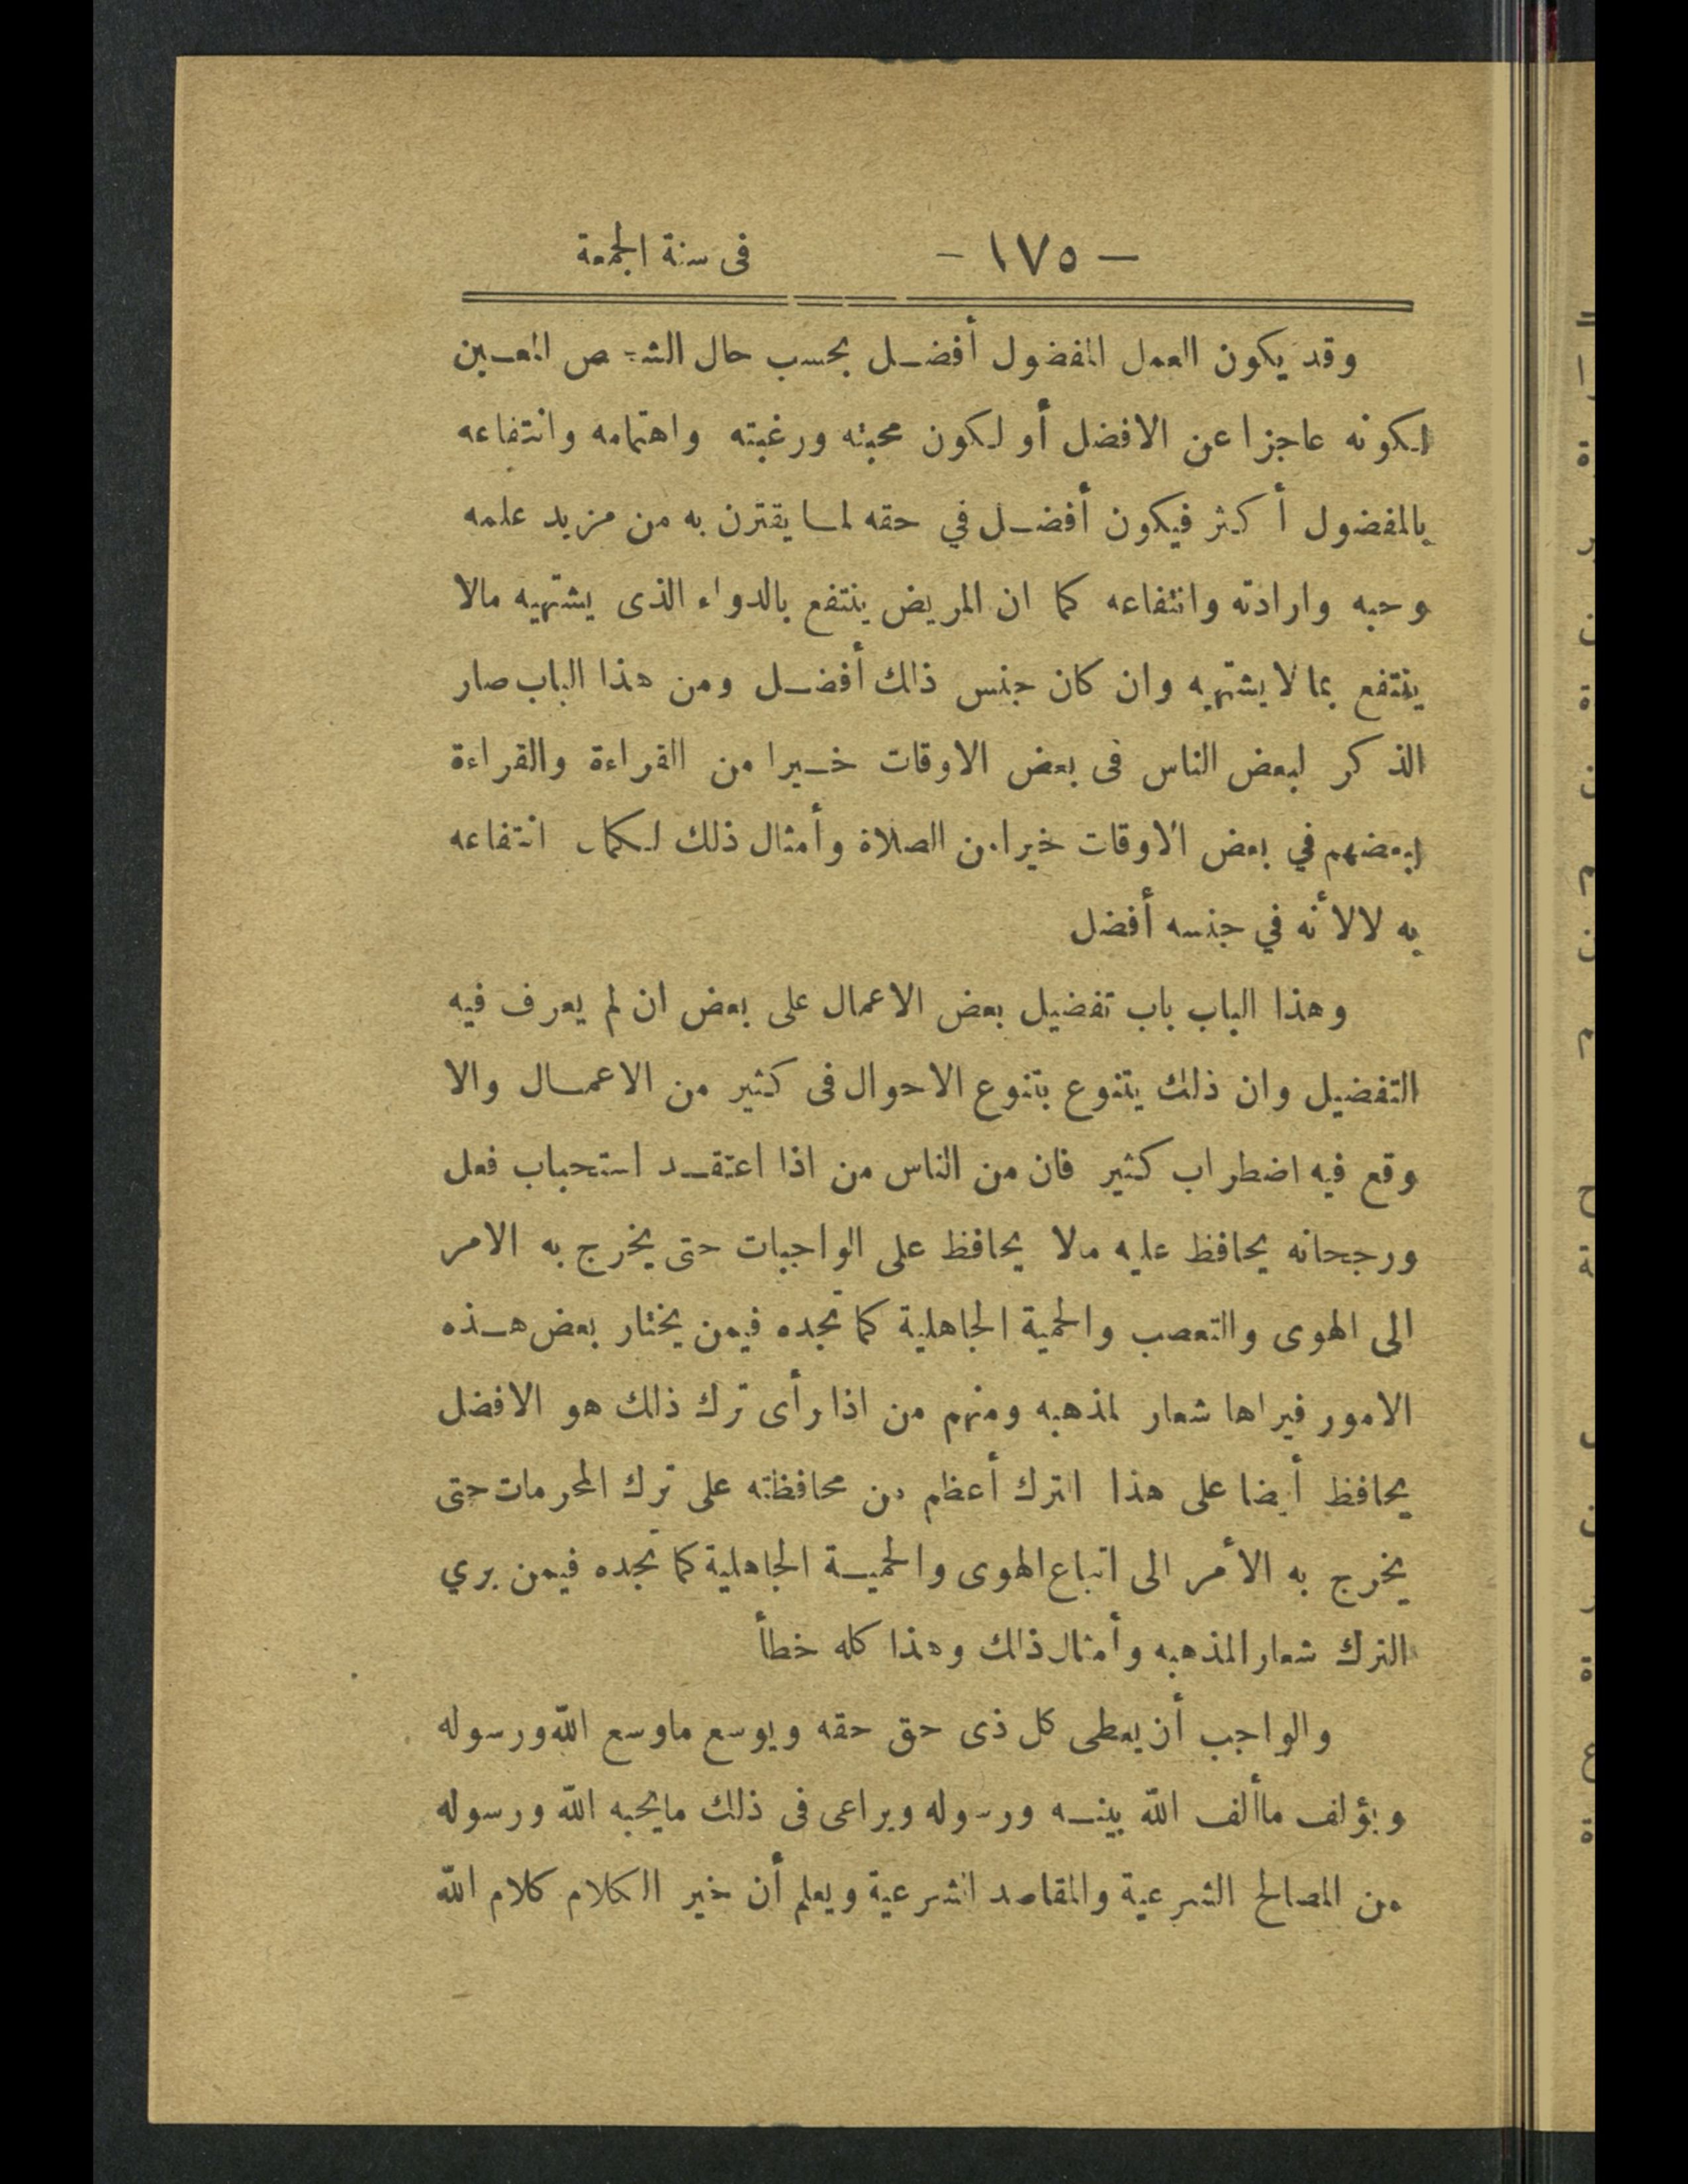 — ١٧٥ — فى سنة الجمعة
وقد يكون العمل المفضول أفضل بحسب حال الشخص المعين
لكونه عاجزا عن الافضل أو لكون محبته ورغبته واهتمامه وانتفاعه
بالمفضول أكثر فيكون أفضل في حقه لما يقترن به من مزيد علمه
وحبه وارادته وانتفاعه كما ان المريض ينتفع بالدواء الذى يشتهيه مالا
ينتفع بما لا يشتهيه وان كان جنس ذلك أفضل ومن هذا الباب صار
الذكر لبعض الناس فى بعض الاوقات خيرا من القراءة والقراءة
لبعضهم في بعض الاوقات خيرا من الصلاة وأمثال ذلك لكمال انتفاعه
به لا لأنه في جنسه أفضل
وهذا الباب باب تفضيل بعض الاعمال على بعض ان لم يعرف فيه
التفضيل وان ذلك يتنوع بتنوع الاحوال فى كثير من الاعمال والا
وقع فيه اضطراب كثير فان من الناس من اذا اعتقد استحباب فعل
ورجحانه يحافظ عليه مالا يحافظ على الواجبات حتى يخرج به الامر
الى الهوى والتعصب والحمية الجاهلية كما تجده فيمن يختار بعض هذه
الامور فيراها شعار لمذهبه ومنهم من اذا رأى ترك ذلك هو الافضل
يحافظ أيضا على هذا الترك أعظم من محافظته على ترك المحرمات حتى
يخرج به الأمر الى اتباع الهوى والحمية الجاهلية كما تجده فيمن يري
الترك شعار المذهبه وأمثال ذلك وهذا كله خطأ
والواجب أن يعطى كل ذى حق حقه ويوسع ماوسع الله ورسوله
ويؤلف ماألف الله بينه ورسوله ويراعى فى ذلك مايحبه الله ورسوله
من المصالح الشرعية والمقاصد الشرعية ويعلم أن خير الكلام كلام الله